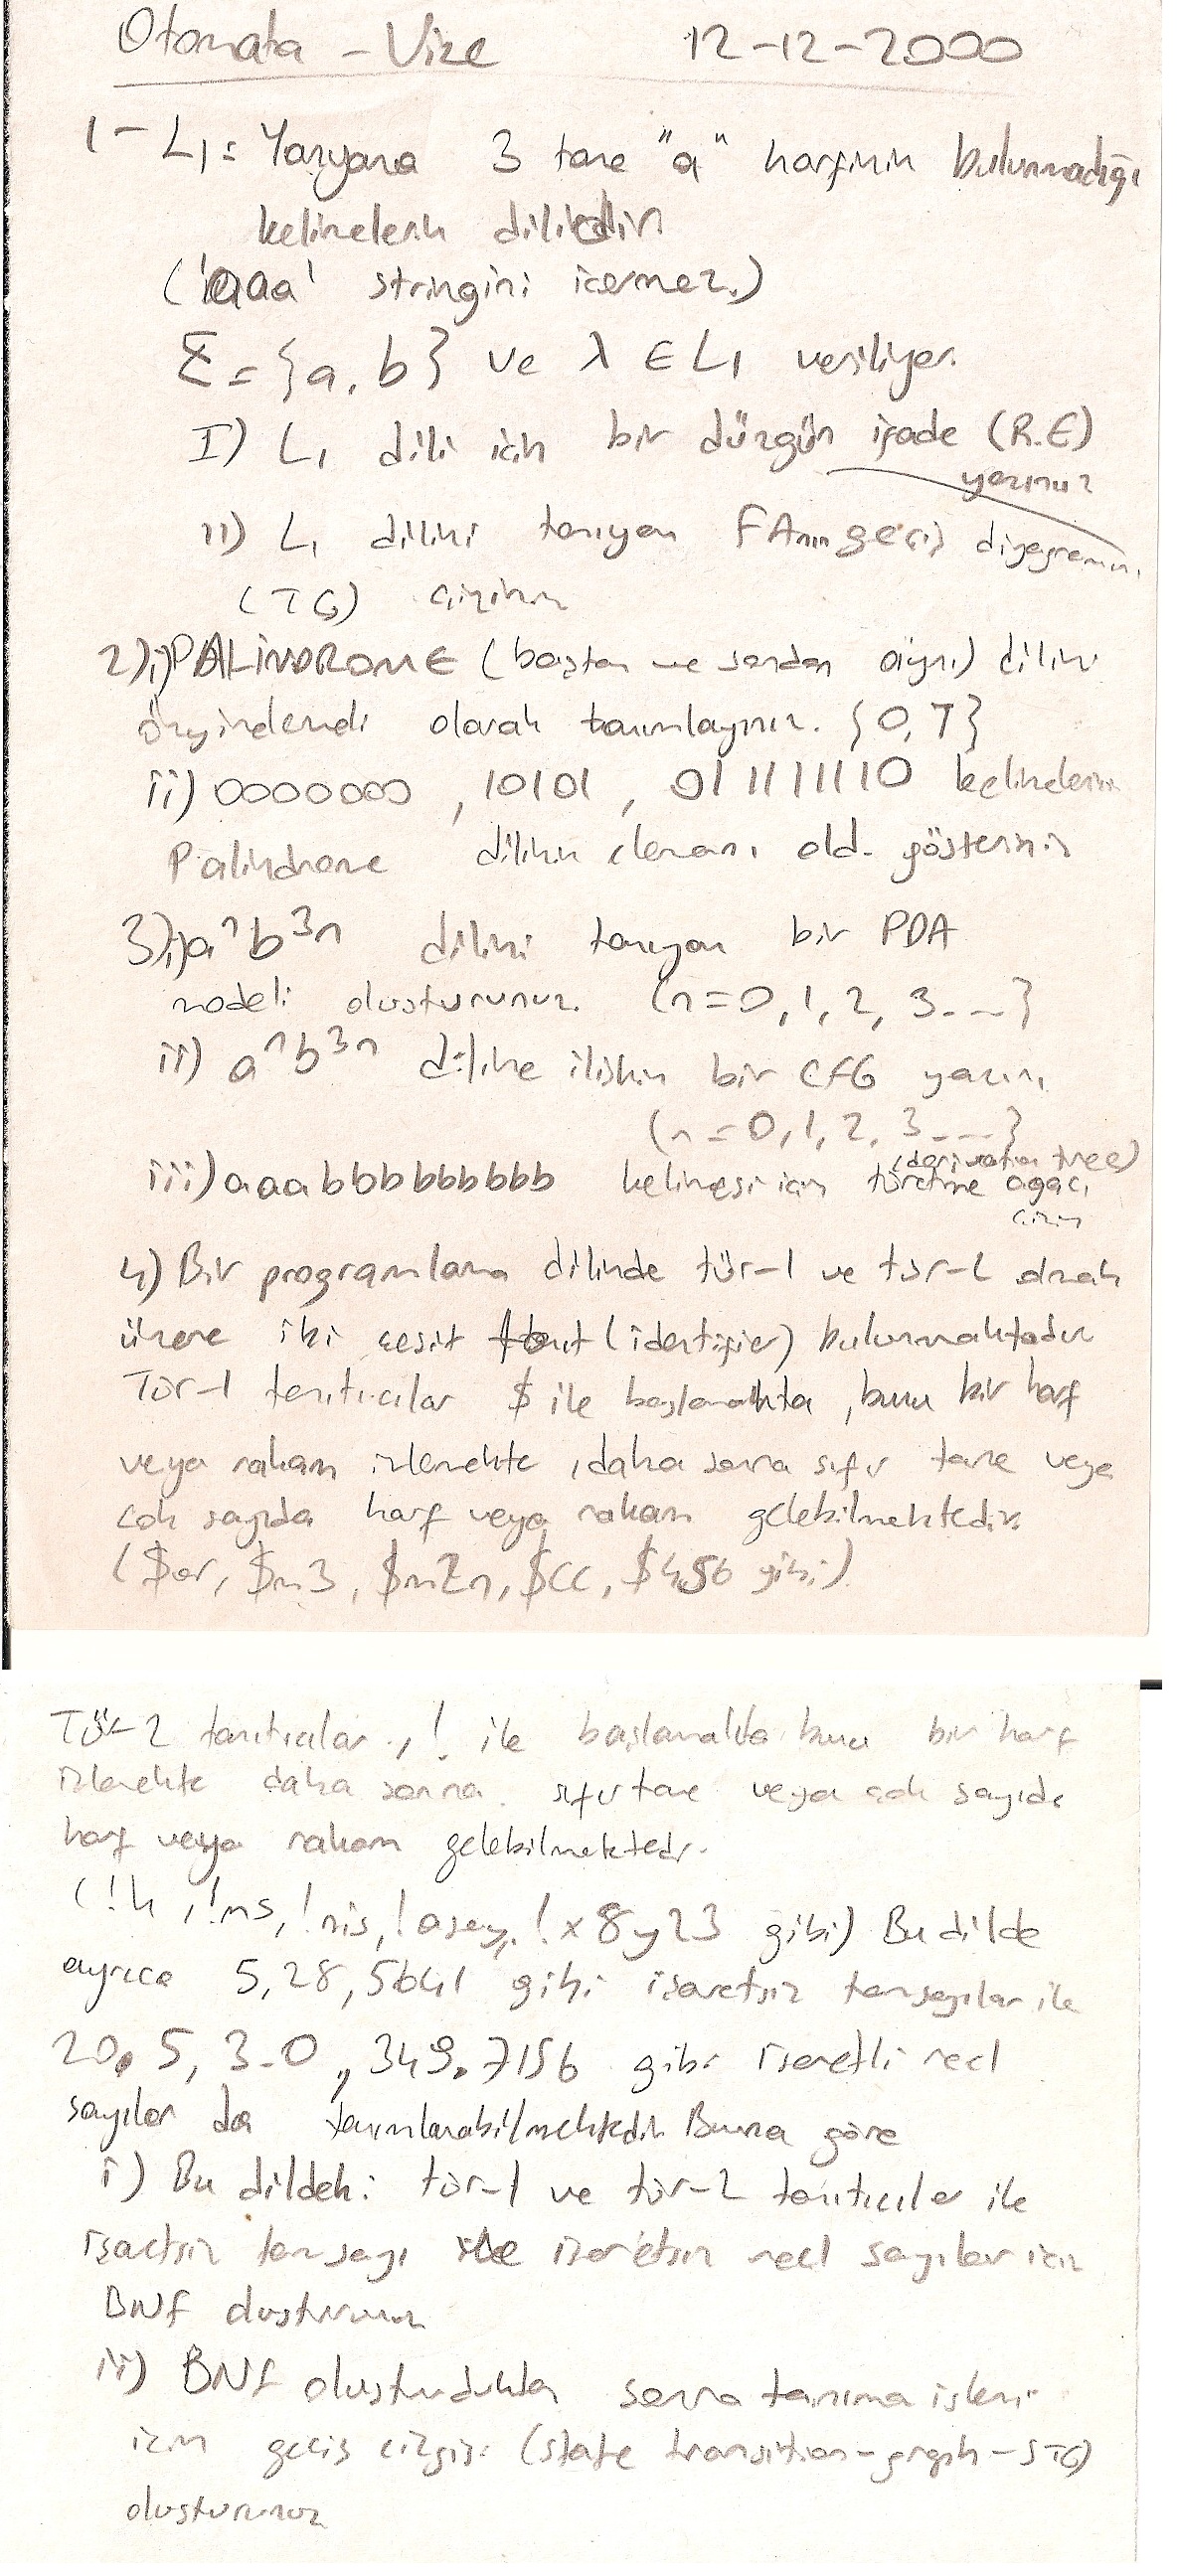 Otomata - Vize 12-12-2000
1- L1: Yanyana 3 tane "a" harfinin bulunmadığı
kelimelerin dilidir
('aaa' stringini içermez.)
Σ = {a, b} ve λ ∈ L1 veriliyor.
I) L1 dili için bir düzgün ifade (R.E)
yazınız
II) L1 dilini tanıyan FAnın geçiş diyagramını
(TG) çizin
2) i) PALİNDROME (baştan ve sondan aynı) dilini
özyinelendi olarak tanımlayınız. {0, 1}
ii) 0000000, 10101, 0111111110 kelimelerin
Palindrome dilinin elemanı old. gösteriniz
3) i) a^n b^3n dilini tanıyan bir PDA
modeli oluşturunuz. (n=0, 1, 2, 3...}
ii) a^n b^3n diline ilişkin bir CFG yazın
(n=0, 1, 2, 3...}
(derivation tree)
iii) aaabbbbbbbbb kelimesi için türetme ağacı
çizin
4) Bir programlama dilinde tür-1 ve tür-2 olmak
üzere iki çeşit (identifier) bulunmaktadır
Tür-1 tanıtıcılar $ ile başlamakta, bunu bir harf
veya rakam izlemekte, daha sonra sıfır tane veya
çok sayıda harf veya rakam gelebilmektedir.
($ar, $m3, $m2n, $cc, $456 gibi)
Tür-2 tanıtıcılar, ! ile başlamakta bunu bir harf
izlemekte daha sonra sıfır tane veya çok sayıda
harf veya rakam gelebilmektedir.
(!k, !ms, !nis, !asey, !x8y23 gibi) Bu dilde
ayrıca 5, 28, 5641 gibi işaretsiz tamsayılar ile
20.5, 3.0, 349.7156 gibi işaretli reel
sayılar da tanımlanabilmektedir. Buna göre
i) Bu dildeki tür-1 ve tür-2 tanıtıcılar ile
işaretsiz tamsayı ile işaretsiz reel sayılar için
BNF oluşturunuz
ii) BNF oluşturduktan sonra tanıma işlemi
için geçiş çizgisi (state transition-graph-STG)
oluşturunuz